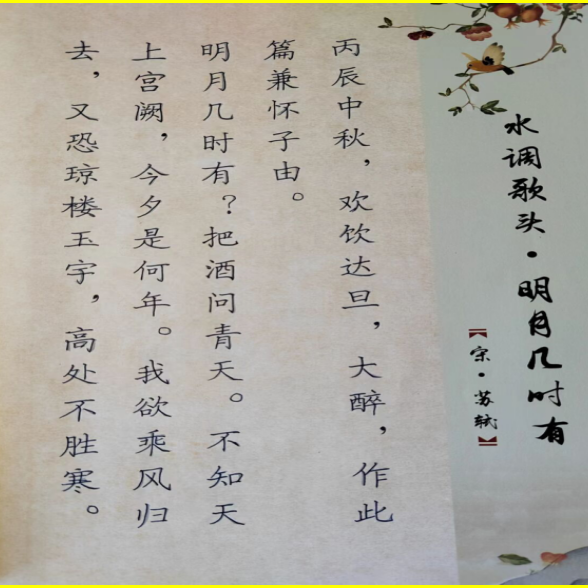 水调歌头·明月几时有
【宋·苏轼】
丙辰中秋，欢饮达旦，大醉，作此
篇兼怀子由。
明月几时有？把酒问青天。不知天
上宫阙，今夕是何年。我欲乘风归
去，又恐琼楼玉宇，高处不胜寒。